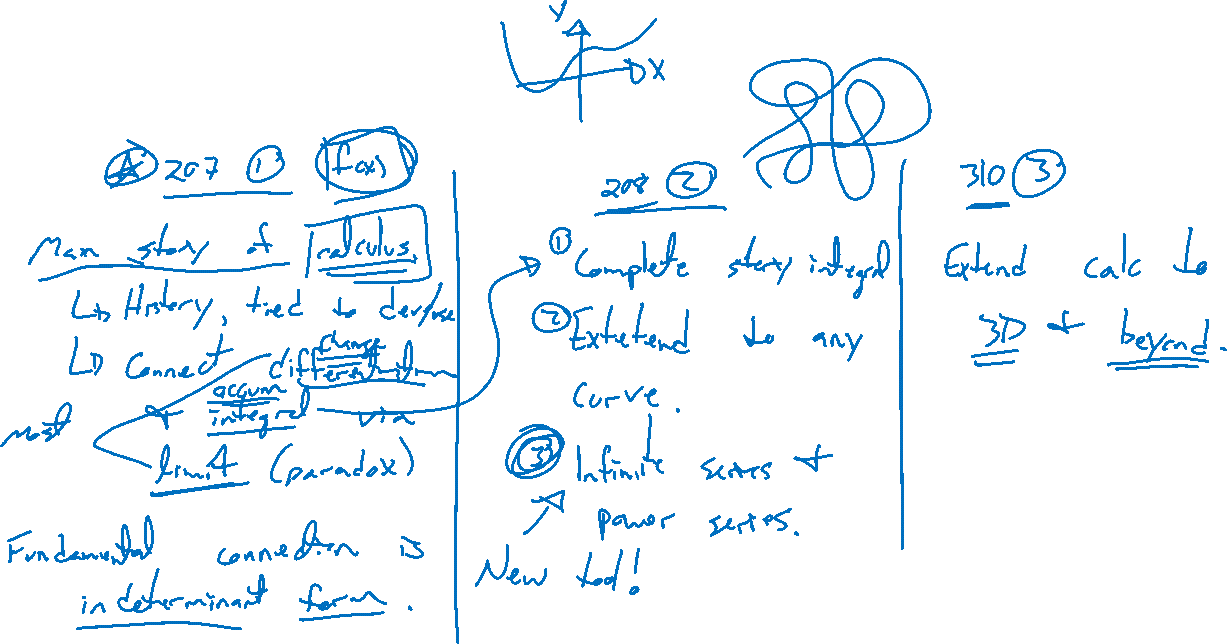 Y
X
207 ① f(x)
Main story of calculus.
History, tied to der/use
Connect differentiation
change
accum
& integral via
most
limit (paradox)
Fundamental connection is
indeterminant form.
208 ②
① Complete story integral
② Extetend to any
curve.
③ Infinite series +
power series.
New tool!
310 ③
Extend calc to
3D + beyond.